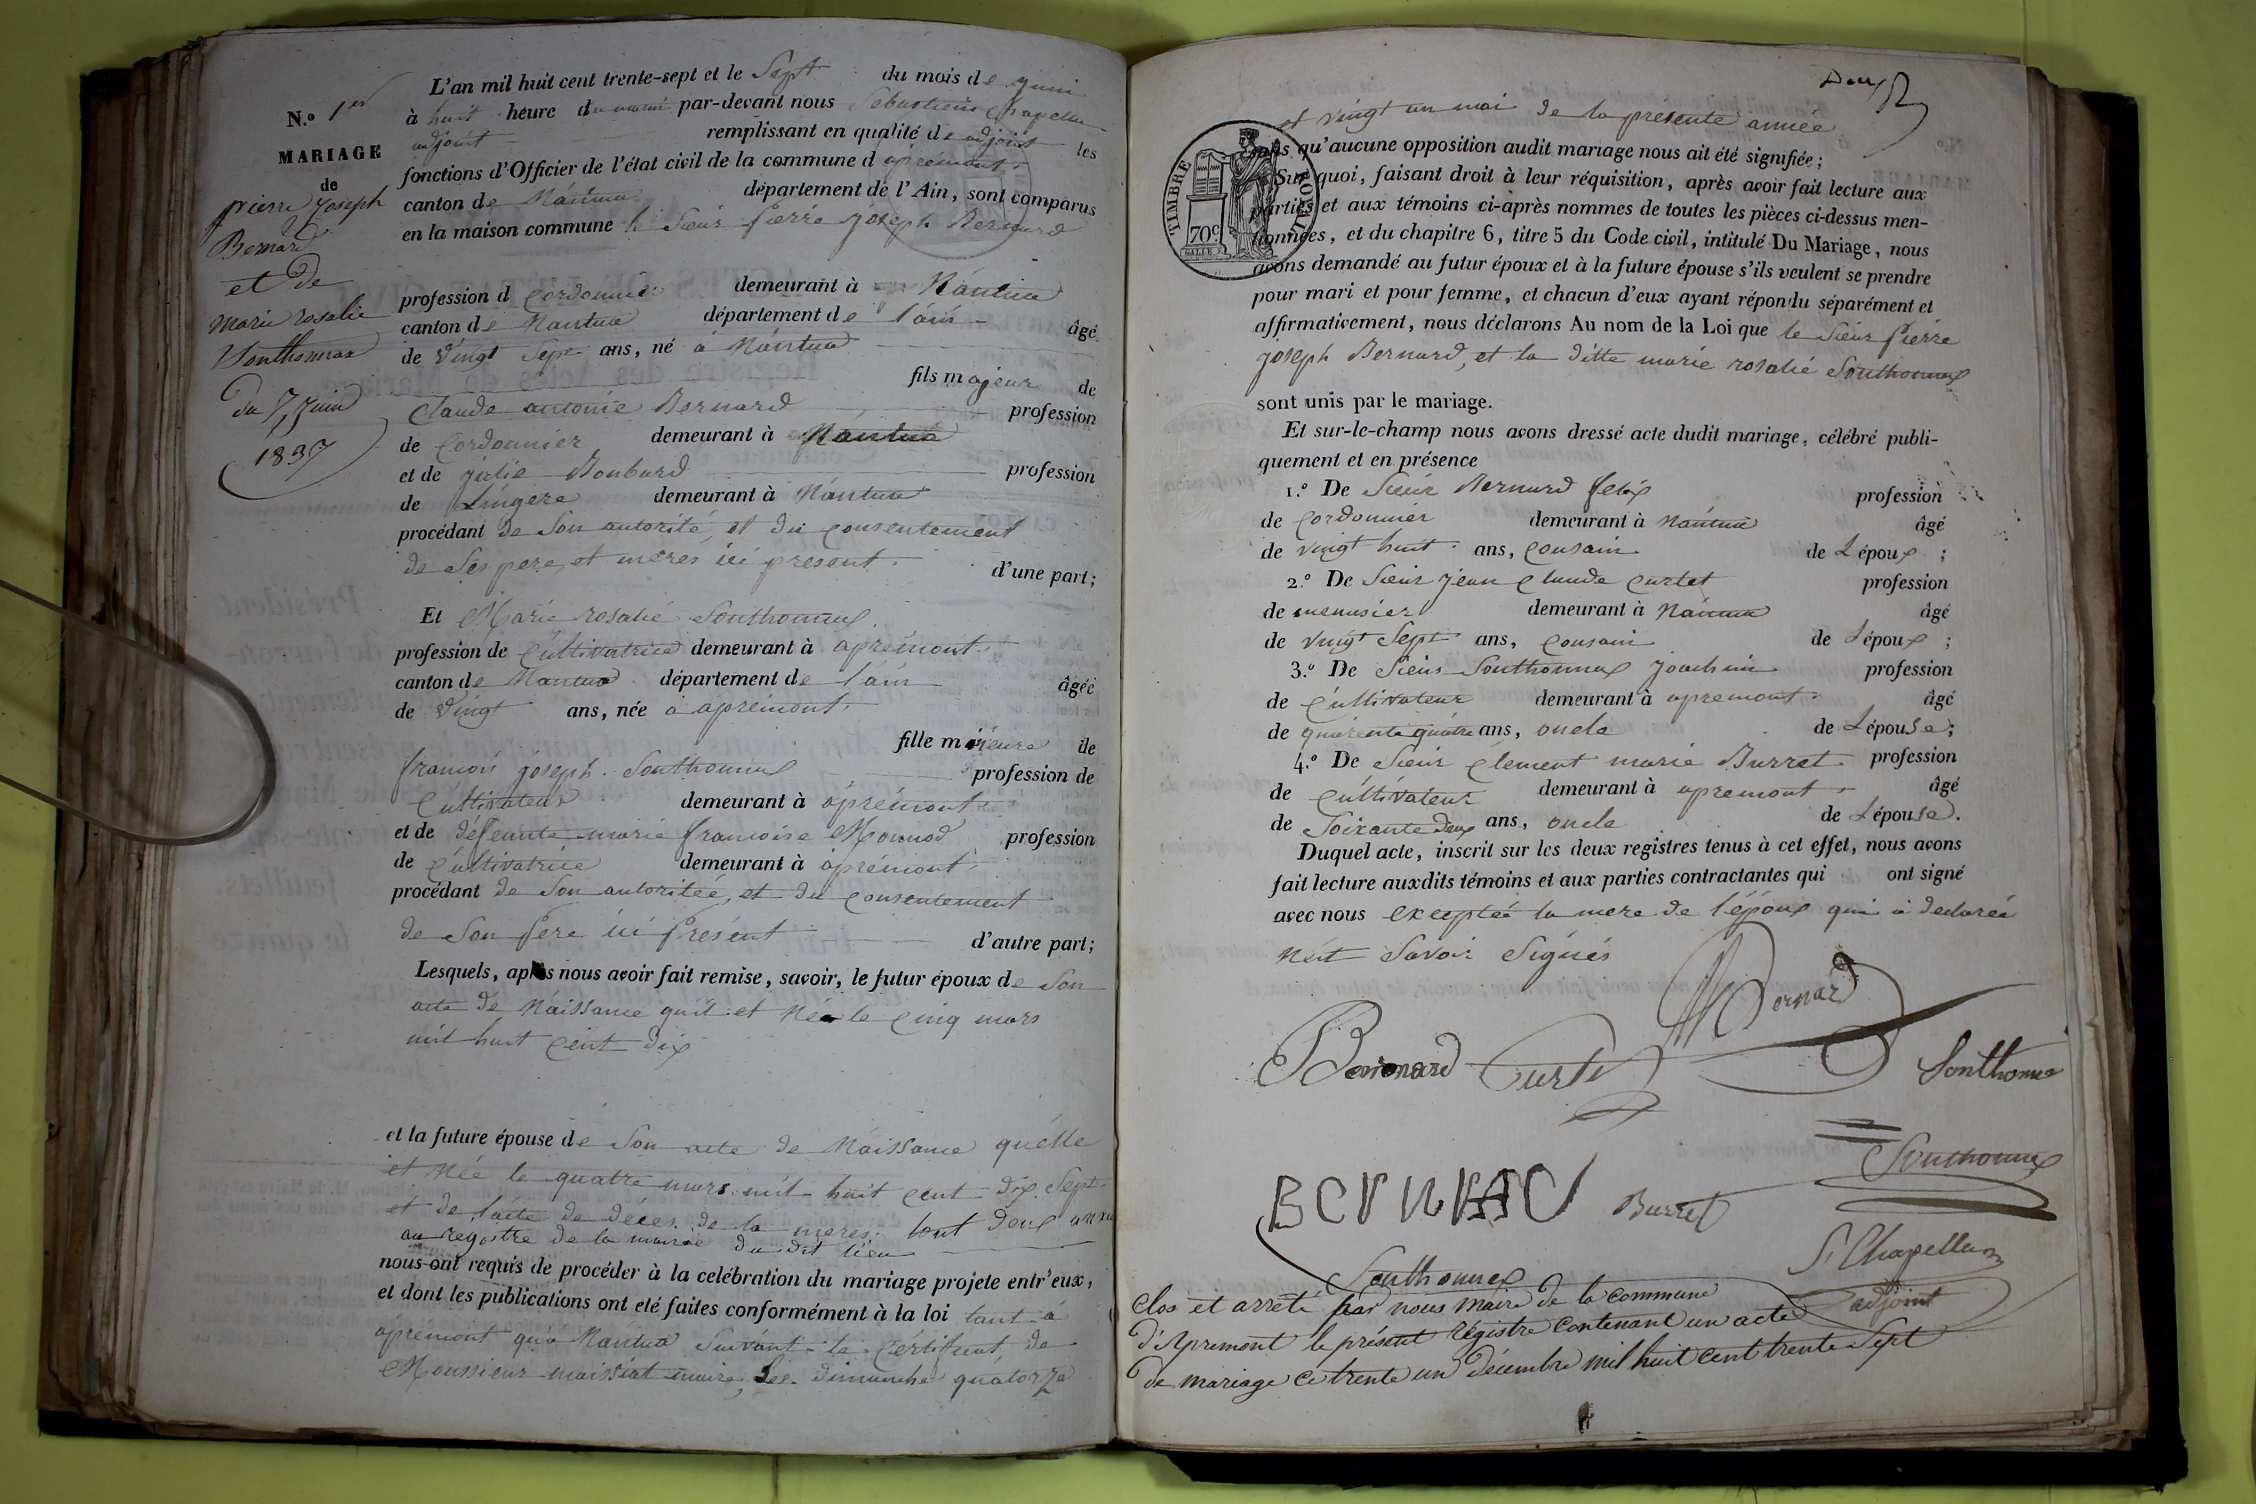 N.º 1er
MARIAGE
de
pierre Joseph
Bernard
et de
Marie rosalie
Sonthonnax
du 7 Juin
1837
L'an mil huit cent trente-sept et le Sept du mois de juin
à huit heure du matin par-devant nous Sébastien Chapellu
adjoint remplissant en qualité de adjoint les
fonctions d'Officier de l'état civil de la commune d apremont
canton de Nantua département de l'Ain, sont comparus
en la maison commune le Sieur pierre joseph Bernard
profession d Cordonnier demeurant à Nantua
canton de Nantua département de l'ain âgé
de vingt Sept ans, né à Nantua
fils majeur de
Claude antoine Bernard profession
de Cordonnier demeurant à Nantua
et de julie Boubard profession
de Lingere demeurant à Nantua
procédant de Son autorité, et du consentement
de Ses pere et meres ici present. d'une part;
Et Marie rosalie Sonthonnax
profession de Cultivatrice demeurant à apremont
canton de Nantua département de l'ain âgée
de vingt ans, née à apremont
fille majeure de
francois joseph Sonthonnax profession de
Cultivateur demeurant à apremont
et de défeunte marie francoise Monnod profession
de Cultivatrice demeurant à apremont
procédant de Son autoritée, et du consentement
de Son père ici présent d'autre part;
Lesquels, après nous avoir fait remise, savoir, le futur époux de Son
acte de Naissance qu'il et Née le cinq mars
mil huit cent dix
et la future épouse de Son acte de Naissance qu'elle
et Née le quatre mars mil huit cent dix Sept
et de l'acte de décés de la meres, tout deux
au registre de la mairie du dit lieu
nous ont requis de procéder à la celébration du mariage projete entr'eux,
et dont les publications ont eté faites conformément à la loi tant à
apremont qu'à Nantua Suivant le Certificat de
Monsieur maissiat maire, Les dimanche quatorze
Deux
et vingt un mai de la présente année
sans qu'aucune opposition audit mariage nous ait été signifiée;
TIMBRE ROYAL
70c
Sur quoi, faisant droit à leur réquisition, après avoir fait lecture aux
parties et aux témoins ci-après nommes de toutes les pièces ci-dessus men-
tionnées, et du chapitre 6, titre 5 du Code civil, intitulé Du Mariage, nous
avons demandé au futur époux et à la future épouse s'ils veulent se prendre
pour mari et pour femme, et chacun d'eux ayant répondu séparément et
affirmativement, nous déclarons Au nom de la Loi que le Sieur pierre
joseph Bernard, et la ditte marie rosalie Sonthonnax
sont unis par le mariage.
Et sur-le-champ nous avons dressé acte dudit mariage, célébré publi-
quement et en présence
1.º De Sieur Bernard felix profession
de Cordonnier demeurant à Nantua âgé
de vingt huit ans, cousain de L'époux ;
2.º De Sieur jean Claude Curtet profession
de menusier demeurant à Nantua âgé
de vingt Sept ans, cousain de L'époux ;
3.º De Sieur Sonthonnax joachim profession
de Cultivateur demeurant à apremont âgé
de quarente quatre ans, oncle de L'épouse;
4.º De Sieur Clement marie Burret profession
de Cultivateur demeurant à apremont âgé
de Soixante deux ans, oncle de L'épouse.
Duquel acte, inscrit sur les deux registres tenus à cet effet, nous avons
fait lecture auxdits témoins et aux parties contractantes qui ont signé
avec nous exceptée la mere de l'époux qui à declarée
Nét Savoir Signés
Bernard
Bernard Curtet Sonthonnax
Sonthonnax
BERNARD Burret
S. Chapellu
adjoint
Sonthonnax
Clos et arreté par nous Maire de la Commune
d'Apremont le présent régistre contenant un acte
de mariage ce trente un Décembre mil huit cent trente Sept